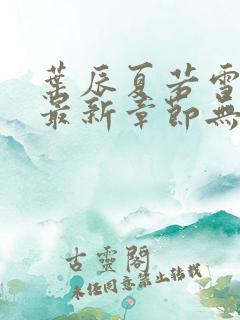 葉辰夏若雪
最新章節無
古靈閣
未经同意禁止转载